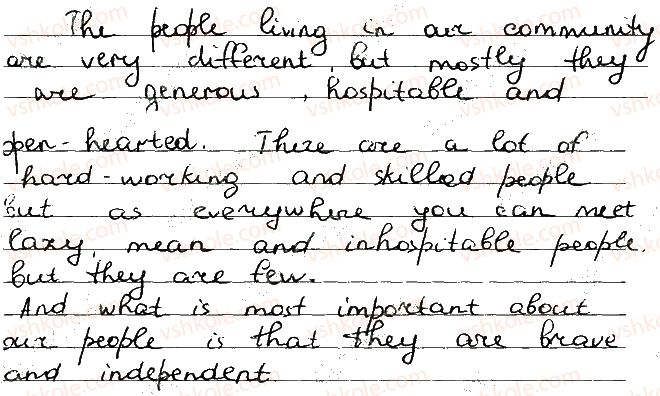 The people living in our community
are very different, but mostly they
are generous, hospitable and
open-hearted. There are a lot of
hard-working and skilled people
But as everywhere you can meet
lazy, mean and inhospitable people.
but they are few.
And what is most important about
our people is that they are brave
and independent